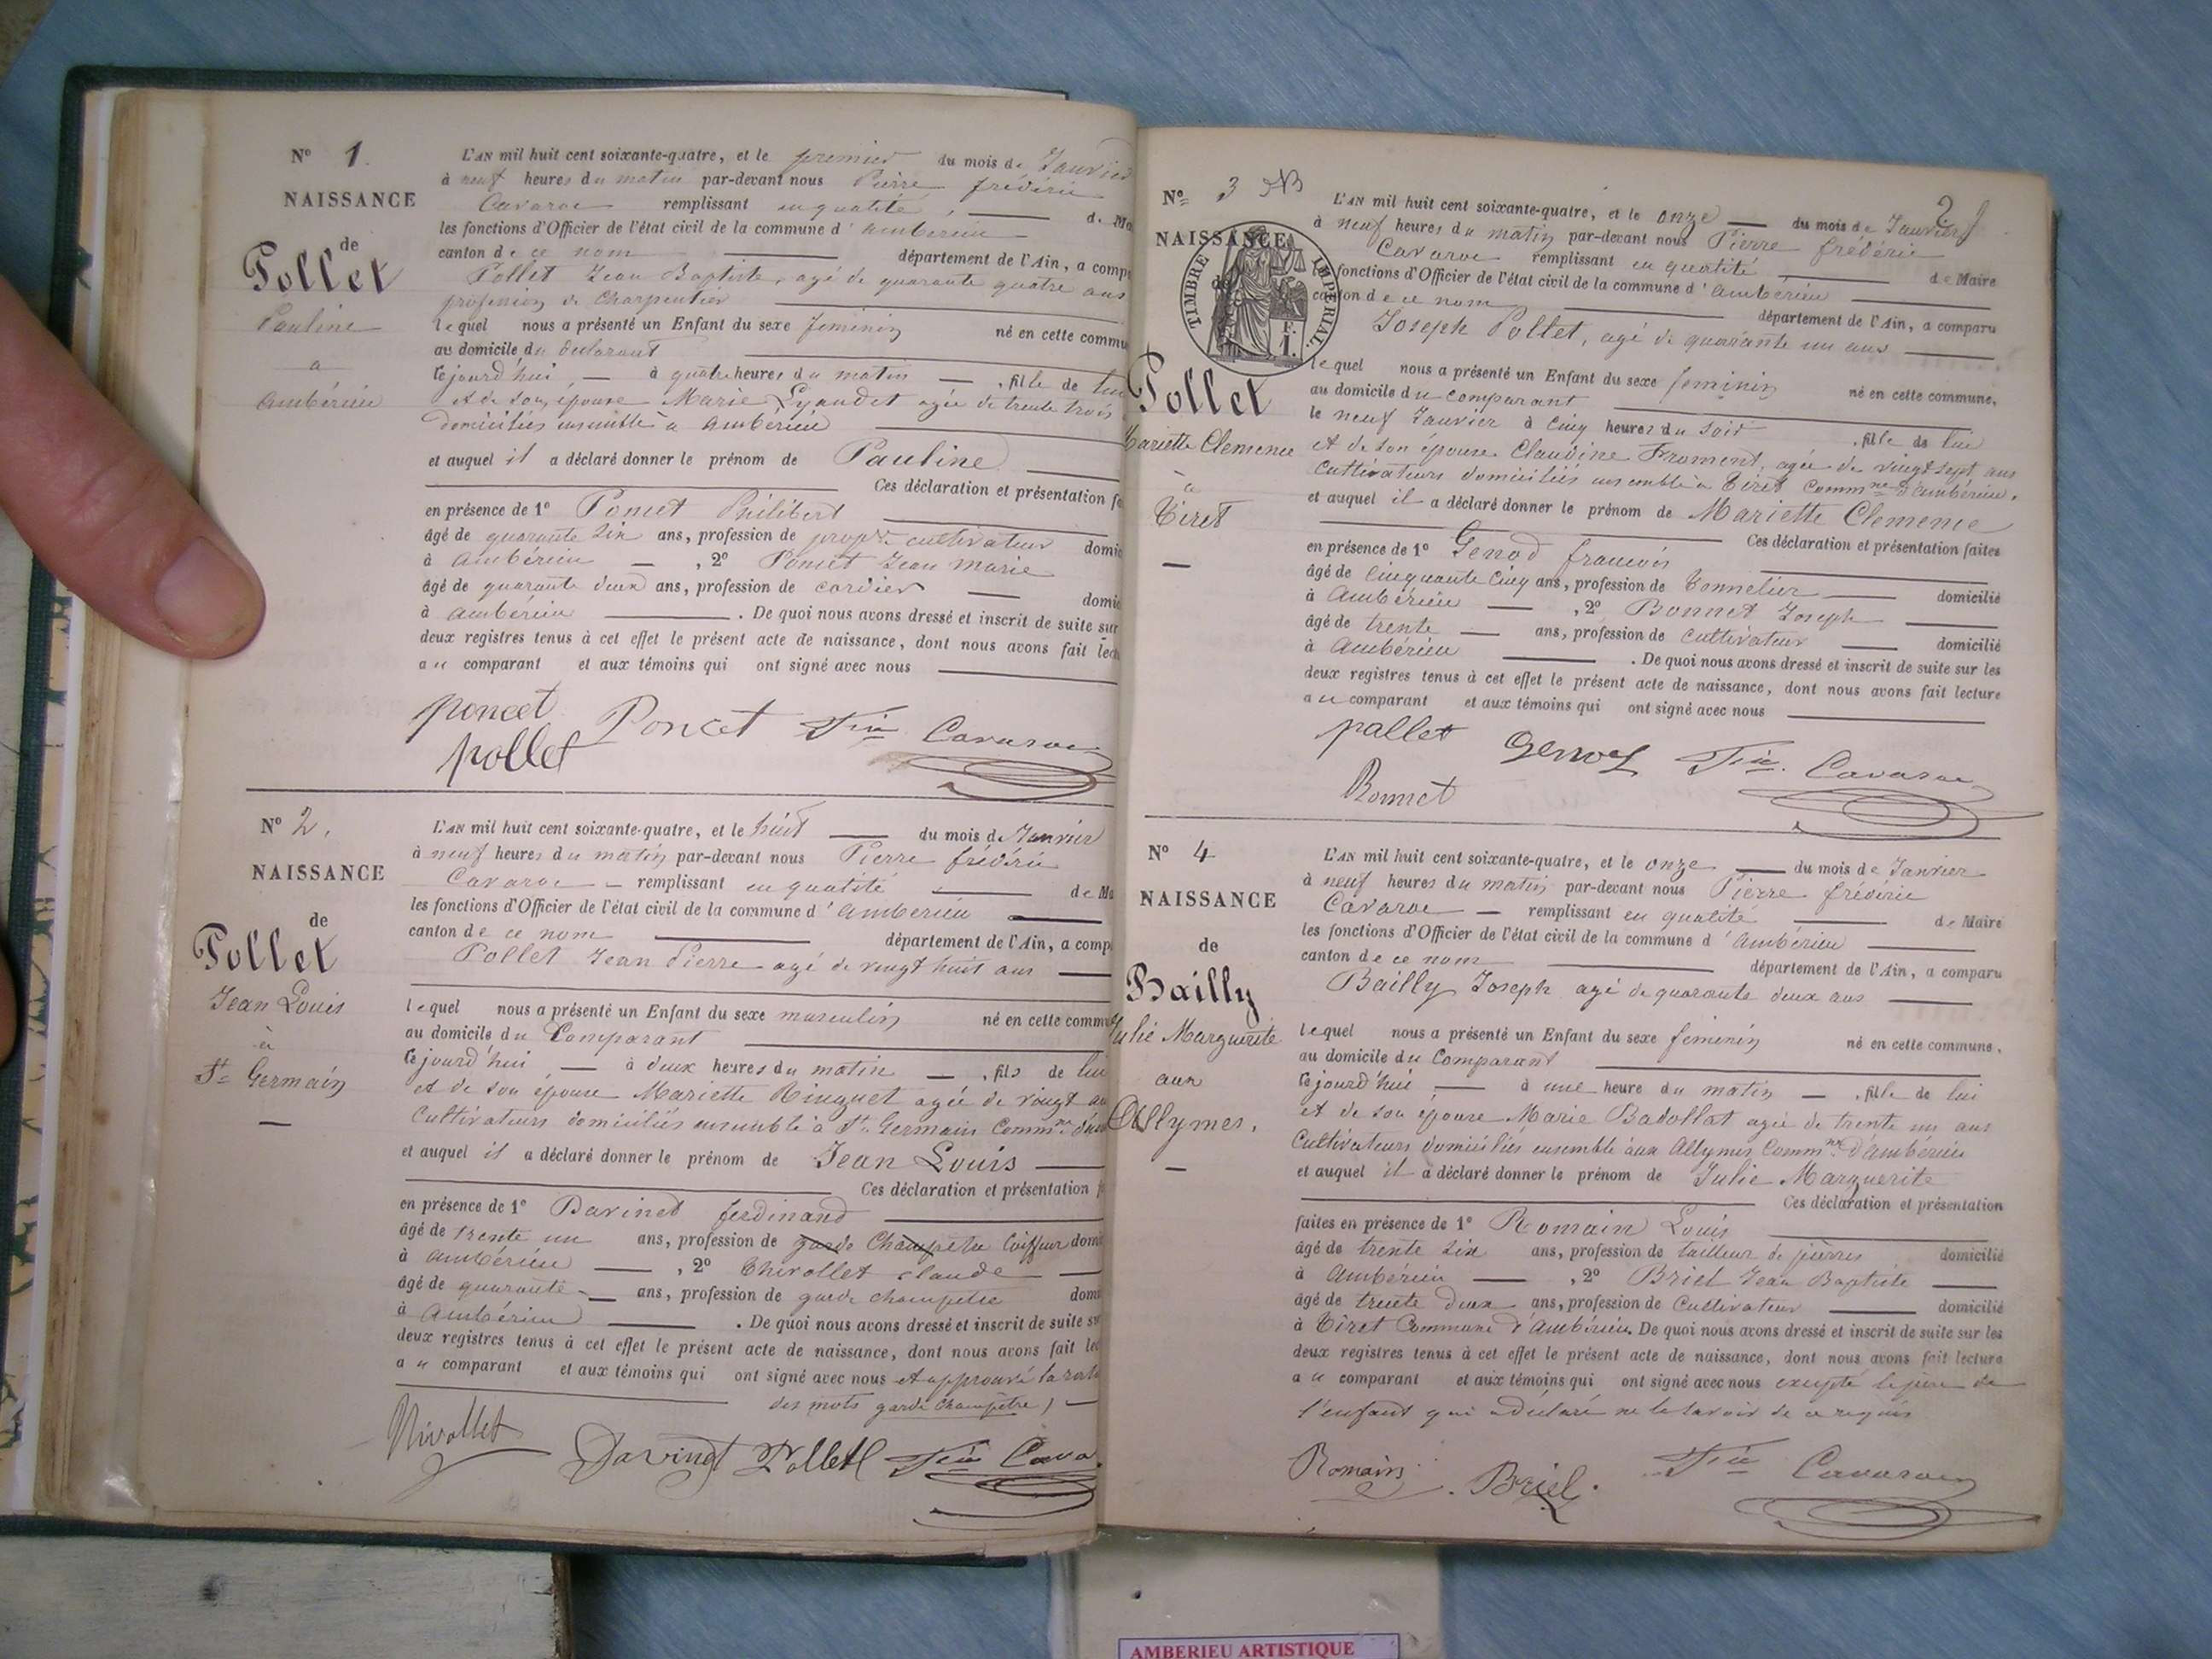 N° 1.
NAISSANCE
de
Pollet
Pauline
a
Ambérieu
L'AN mil huit cent soixante-quatre, et le premier du mois de Janvier
à neuf heures du matin par-devant nous Pierre frédéric
Cavaroc remplissant en qualité, de Ma
les fonctions d'Officier de l'état civil de la commune d'Ambérieu
canton de ce nom département de l'Ain, a comp
Pollet Jean Baptiste, agé de quarante quatre ans
profession de Charpentier
lequel nous a présenté un Enfant du sexe feminin né en cette commu
au domicile du declarant
cejourd'hui à quatre heures du matin, fille de lui
et de son épouse Marie Lyaudet agée de trente trois
domiciliés ensemble à Ambérieu
et auquel il a déclaré donner le prénom de Pauline
Ces déclaration et présentation fa
en présence de 1° Poncet Philibert
âgé de quarante six ans, profession de prop.re cultivateur domic
à Ambérieu, 2° Poncet Jean marie
âgé de quarante deux ans, profession de cordier domic
à Ambérieu. De quoi nous avons dressé et inscrit de suite sur
deux registres tenus à cet effet le présent acte de naissance, dont nous avons fait lectu
au comparant et aux témoins qui ont signé avec nous
poncet Poncet F.ric Cavaroc
pollet
N° 2.
NAISSANCE
de
Pollet
Jean Louis
à
St Germain
L'AN mil huit cent soixante-quatre, et le huit du mois de Janvier
à neuf heures du matin par-devant nous Pierre frédéric
Cavaroc remplissant en qualité de Ma
les fonctions d'Officier de l'état civil de la commune d'Ambérieu
canton de ce nom département de l'Ain, a comp
Pollet Jean Pierre agé de vingt huit ans
lequel nous a présenté un Enfant du sexe masculin né en cette commu
au domicile du Comparant
cejourd'hui à deux heures du matin, fils de lui
et de son épouse Mariette Ringuet agée de vingt
Cultivateurs domiciliés ensemble à St Germain Comm.ne
et auquel il a déclaré donner le prénom de Jean Louis
Ces déclaration et présentation f
en présence de 1° Davinet ferdinand
âgé de trente un ans, profession de garde Champêtre Coiffeur domi
à Ambérieu, 2° Thivollet claude
âgé de quarante ans, profession de garde champetre domi
à Ambérieu. De quoi nous avons dressé et inscrit de suite su
deux registres tenus à cet effet le présent acte de naissance, dont nous avons fait lec
au comparant et aux témoins qui ont signé avec nous et approuvé la
des mots garde champêtre)
Davinet Pollet F.ric Cava
N° 3
2
NAISSANCE
de
TIMBRE IMPERIAL
F.
1.
Pollet
Mariette Clemence
à
Tiret
L'AN mil huit cent soixante-quatre, et le onze du mois de Janvier
à neuf heures du matin par-devant nous Pierre frédéric
Cavaroc remplissant en qualité de Maire
les fonctions d'Officier de l'état civil de la commune d'Ambérieu
canton de ce nom département de l'Ain, a comparu
Joseph Pollet, agé de quarante un ans
lequel nous a présenté un Enfant du sexe feminin né en cette commune,
au domicile du comparant
le neuf Janvier à cinq heures du soir, fille de lui
et de son épouse Claudine Froment, agée de vingt sept ans
Cultivateurs domiciliés ensemble à Tiret Comm.ne d'Ambérieu.
et auquel il a déclaré donner le prénom de Mariette Clemence
Ces déclaration et présentation faites
en présence de 1° Genod francois
âgé de cinquante cinq ans, profession de Tonnelier domicilié
à Ambérieu, 2° Bonnet Joseph
âgé de trente ans, profession de cultivateur domicilié
à Ambérieu. De quoi nous avons dressé et inscrit de suite sur les
deux registres tenus à cet effet le présent acte de naissance, dont nous avons fait lecture
au comparant et aux témoins qui ont signé avec nous
pollet Genod F.ric Cavaroc
Bonnet
N° 4
NAISSANCE
de
Bailly
Julie Marguerite
aux
Allymes.
L'AN mil huit cent soixante-quatre, et le onze du mois de Janvier
à neuf heures du matin par-devant nous Pierre frédéric
Cavaroc remplissant en qualité de Maire
les fonctions d'Officier de l'état civil de la commune d'Ambérieu
canton de ce nom département de l'Ain, a comparu
Bailly Joseph agé de quarante deux ans
lequel nous a présenté un Enfant du sexe feminin né en cette commune,
au domicile du Comparant
cejourd'hui à une heure du matin, fille de lui
et de son épouse Marie Badollat agée de trente un ans
Cultivateurs domiciliés ensemble aux Allymes Comm.ne d'Ambérieu
et auquel il a déclaré donner le prénom de Julie Marguerite
Ces déclaration et présentation
faites en présence de 1° Romain Louis
âgé de trente six ans, profession de tailleur de pierres domicilié
à Ambérieu, 2° Briel Jean Baptiste
âgé de trente deux ans, profession de Cultivateur domicilié
à Tiret Commune d'Ambérieu. De quoi nous avons dressé et inscrit de suite sur les
deux registres tenus à cet effet le présent acte de naissance, dont nous avons fait lecture
au comparant et aux témoins qui ont signé avec nous excepté le père de
l'enfant qui a déclaré ne le savoir de ce requis
Romain Briel. F.ric Cavaroc
AMBERIEU ARTISTIQUE